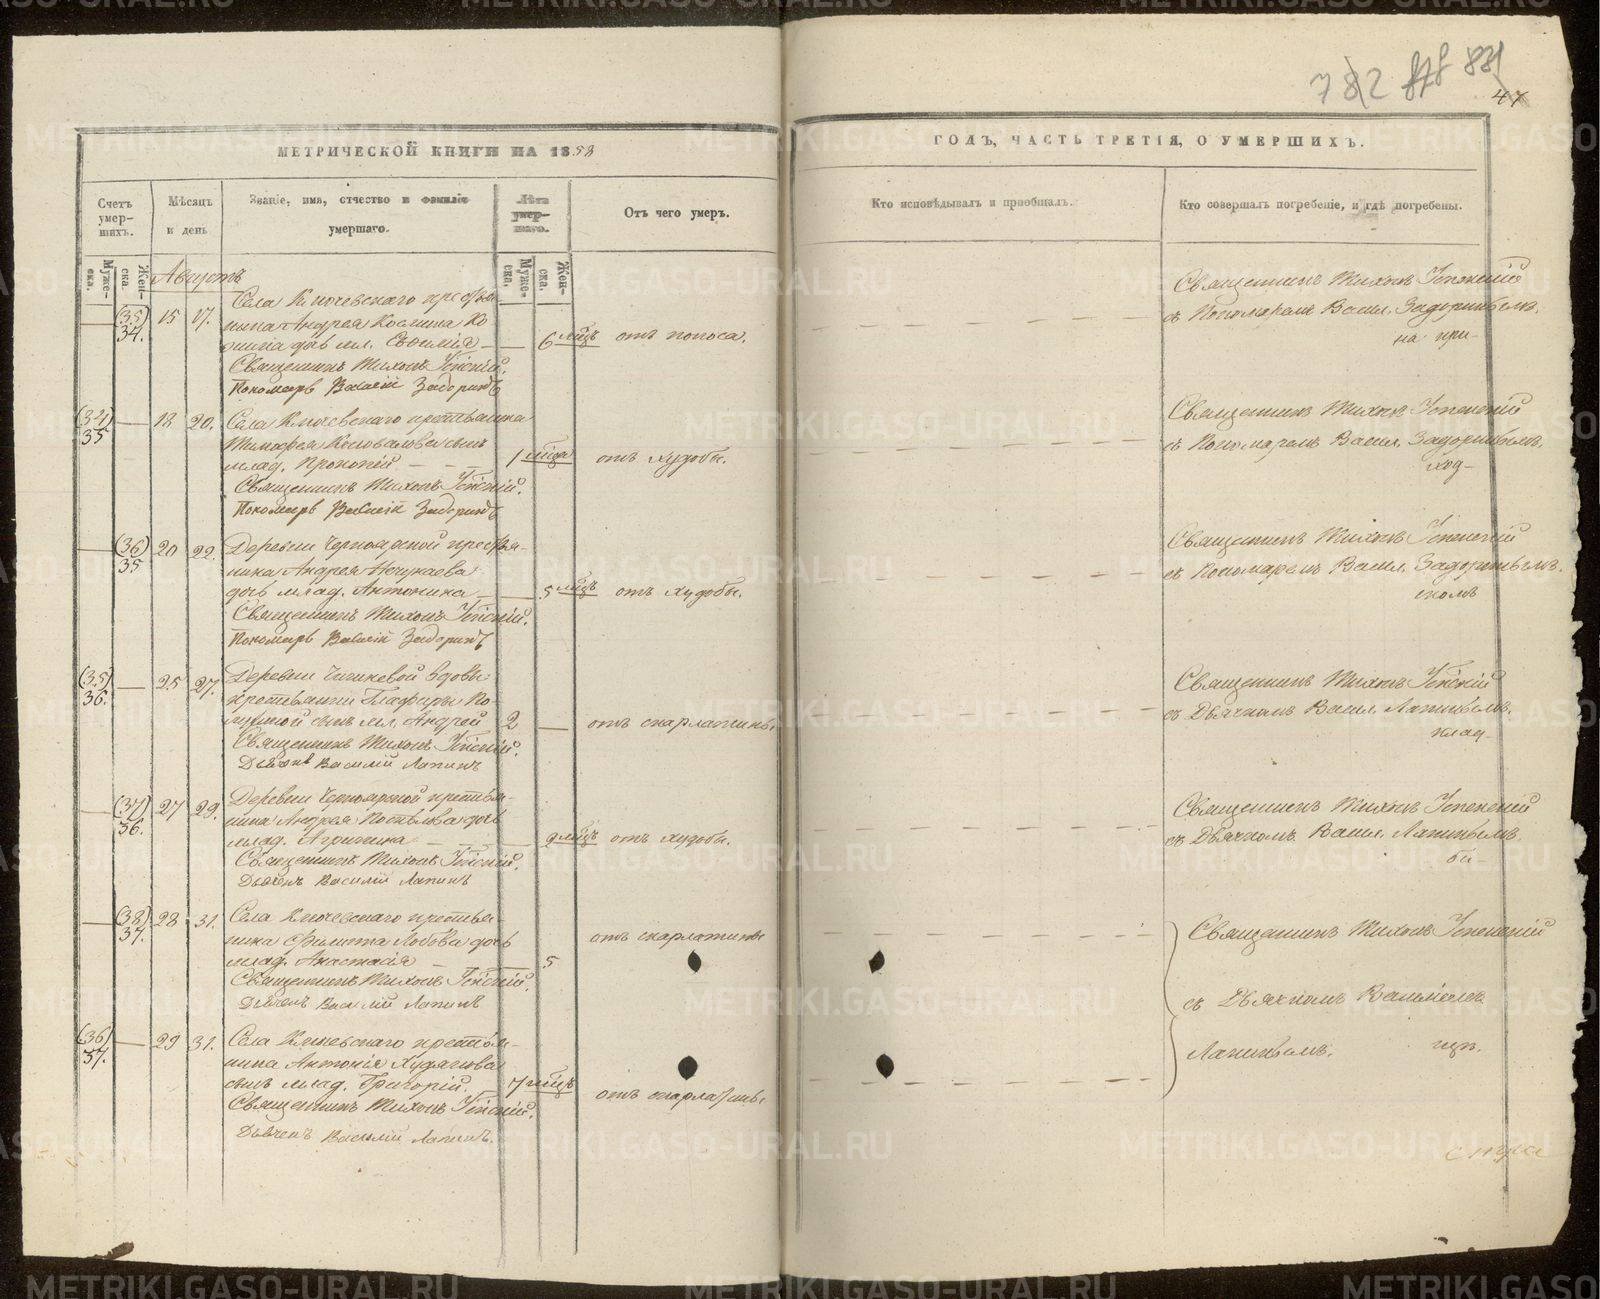 782 878 881
47
МЕТРИЧЕСКОЙ КНИГИ НА 1858
ГОДЪ, ЧАСТЬ ТРЕТІЯ, О УМЕРШИХЪ.
Счетъ умер-шихъ.
Муже-ска.
Жен-ска.
Мѣсяцъ и день
Званіе, имя, отчество и фамиліе умершаго.
Лѣта умер-шаго.
Муже-ска.
Жен-ска.
Отъ чего умеръ.
Кто исповѣдывалъ и пріобщалъ.
Кто совершалъ погребеніе, и гдѣ погребены.
Августъ
(35) 34. 15 17. Села Ключевскаго крестья-
нина Андрея
дочь мл. — 6 мѣсцъ отъ поноса.
Священникъ Тихонъ Успенскій
съ Пономаремъ Васил. Задоринымъ.
на при-
Священникъ Тихонъ Успенскій.
Пономарь Василій Задоринъ
(34) 35 — 18 20. Села Ключевскаго крестьянина
Тимофея Коновалова сынъ
млад. Прокопій — 1 мѣсца отъ худобы.
Священникъ Тихонъ Успенскій
съ Пономаремъ Васил. Задоринымъ.
ход-
Священникъ Тихонъ Успенскій.
Пономарь Василій Задоринъ
— (36) 35 20 22. Деревни Черноярской крестья-
нина Андрея
дочь млад. Антонина — 5 мѣсцъ отъ худобы.
Священникъ Тихонъ Успенскій
съ Пономаремъ Васил. Задоринымъ.
скомъ
Священникъ Тихонъ Успенскій.
Пономарь Василій Задоринъ
(35) 36. — 25 27. Деревни вдовы
крестьянки Глафиры По-
сынъ мл. Андрей 2 — отъ скарлатины.
Священникъ Тихонъ Успенскій
съ Дьячкомъ Васил. Лапинымъ.
клад-
Священникъ Тихонъ Успенскій.
Дьячекъ Василій Лапинъ
— (37) 36. 27 29. Деревни Черноярской крестья-
нина Андрея Костылева дочь
млад. Агрипина — 9 мѣсцъ отъ худобы.
Священникъ Тихонъ Успенскій
съ Дьячкомъ Васил. Лапинымъ.
би-
Священникъ Тихонъ Успенскій.
Дьячекъ Василій Лапинъ
— (38) 37. 28 31. Села Ключевскаго крестья-
нина Филиппа Лобова дочь
млад. Анастасія — 5 отъ скарлатины
Священникъ Тихонъ Успенскій
съ Дьячкомъ Василіемъ
Лапинымъ. щѣ.
Священникъ Тихонъ Успенскій.
Дьячекъ Василій Лапинъ
(36) 37. — 29 31. Села Ключевскаго крестья-
нина Антонія Худякова
сынъ млад. Григорій. 7 мѣсцъ отъ скарлатины.
Священникъ Тихонъ Успенскій.
Дьячекъ Василій Лапинъ.
METRIKI.GASO-URAL.RU